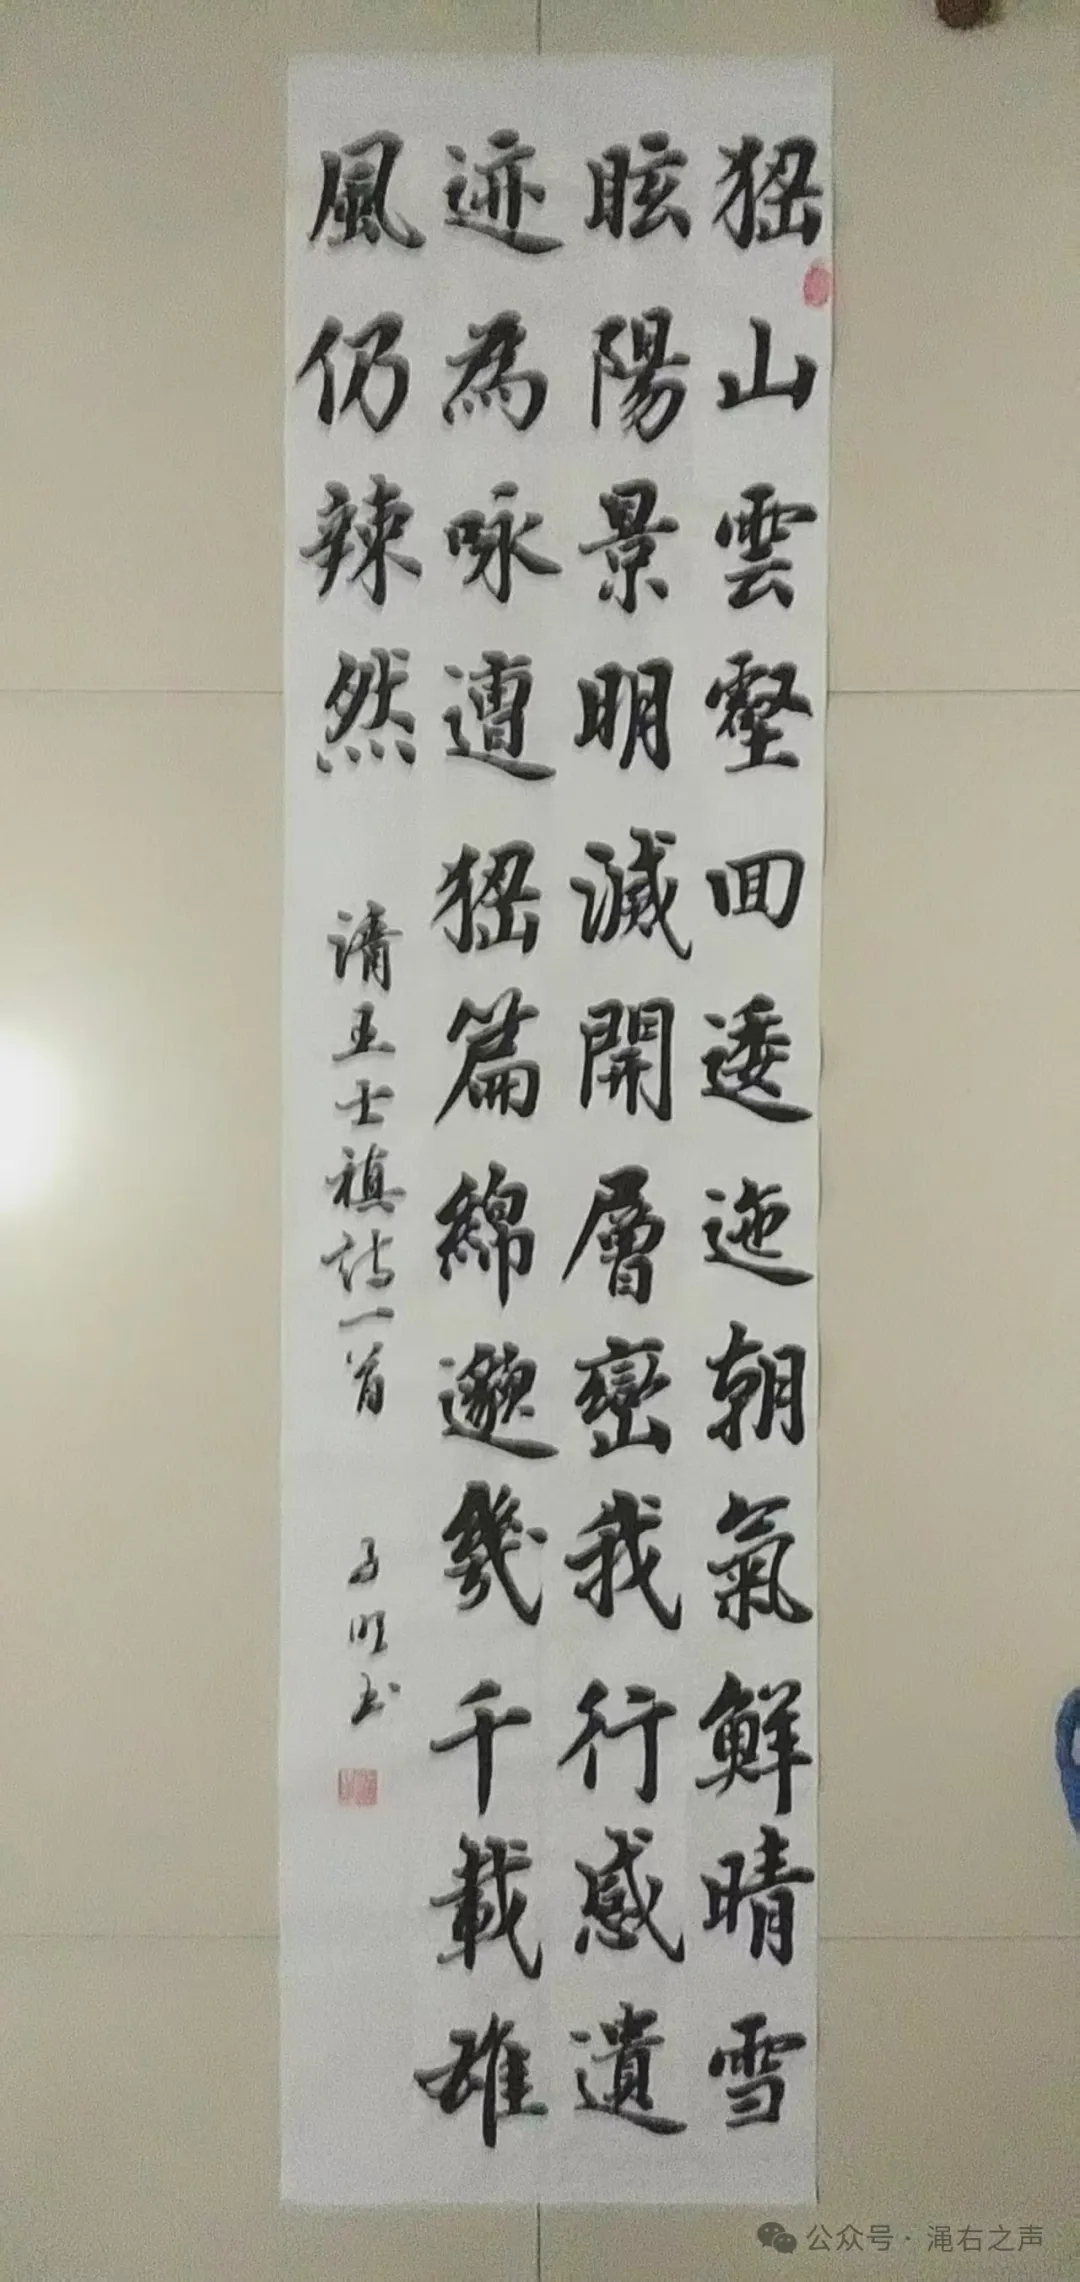 猺山雲壑回逶迤朝氣鮮晴雪
眩陽景明滅開層巒我行感遺
迹為咏遭猺篇綿邈幾千載雄
風仍辣然
清王士禛詩一首
公众号·渑右之声